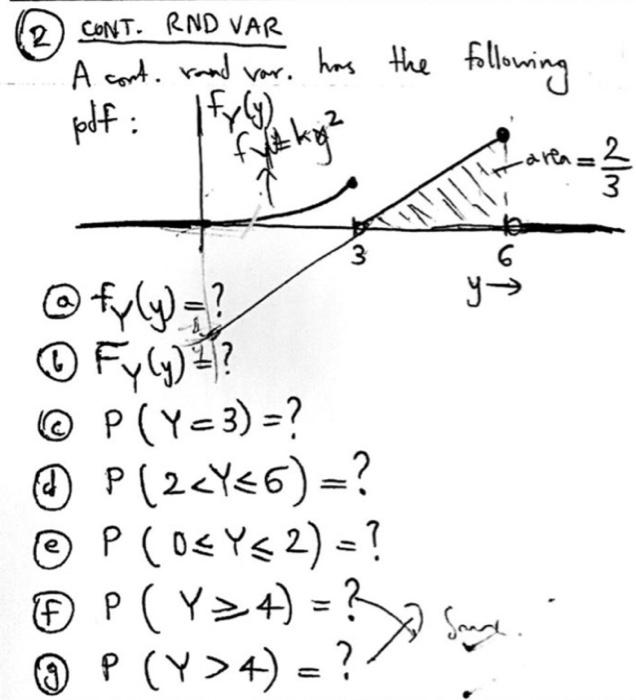 ② CONT. RND VAR
A cont. rand var. has the following
pdf : f_Y(y)
f_Y = ky²
area = 2/3
3 6
y →
ⓐ f_Y(y) = ?
ⓑ F_Y(y) = ?
ⓒ P(Y=3) = ?
ⓓ P(2<Y≤6) = ?
ⓔ P(0≤Y≤2) = ?
ⓕ P(Y≥4) = ?
Same.
ⓖ P(Y>4) = ?